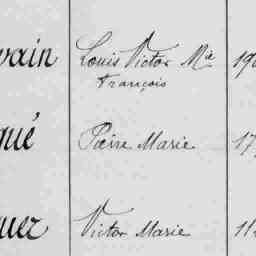 vain Louis Victor Mie 190
François
qué Pierre Marie 17
uer Victor Marie 11